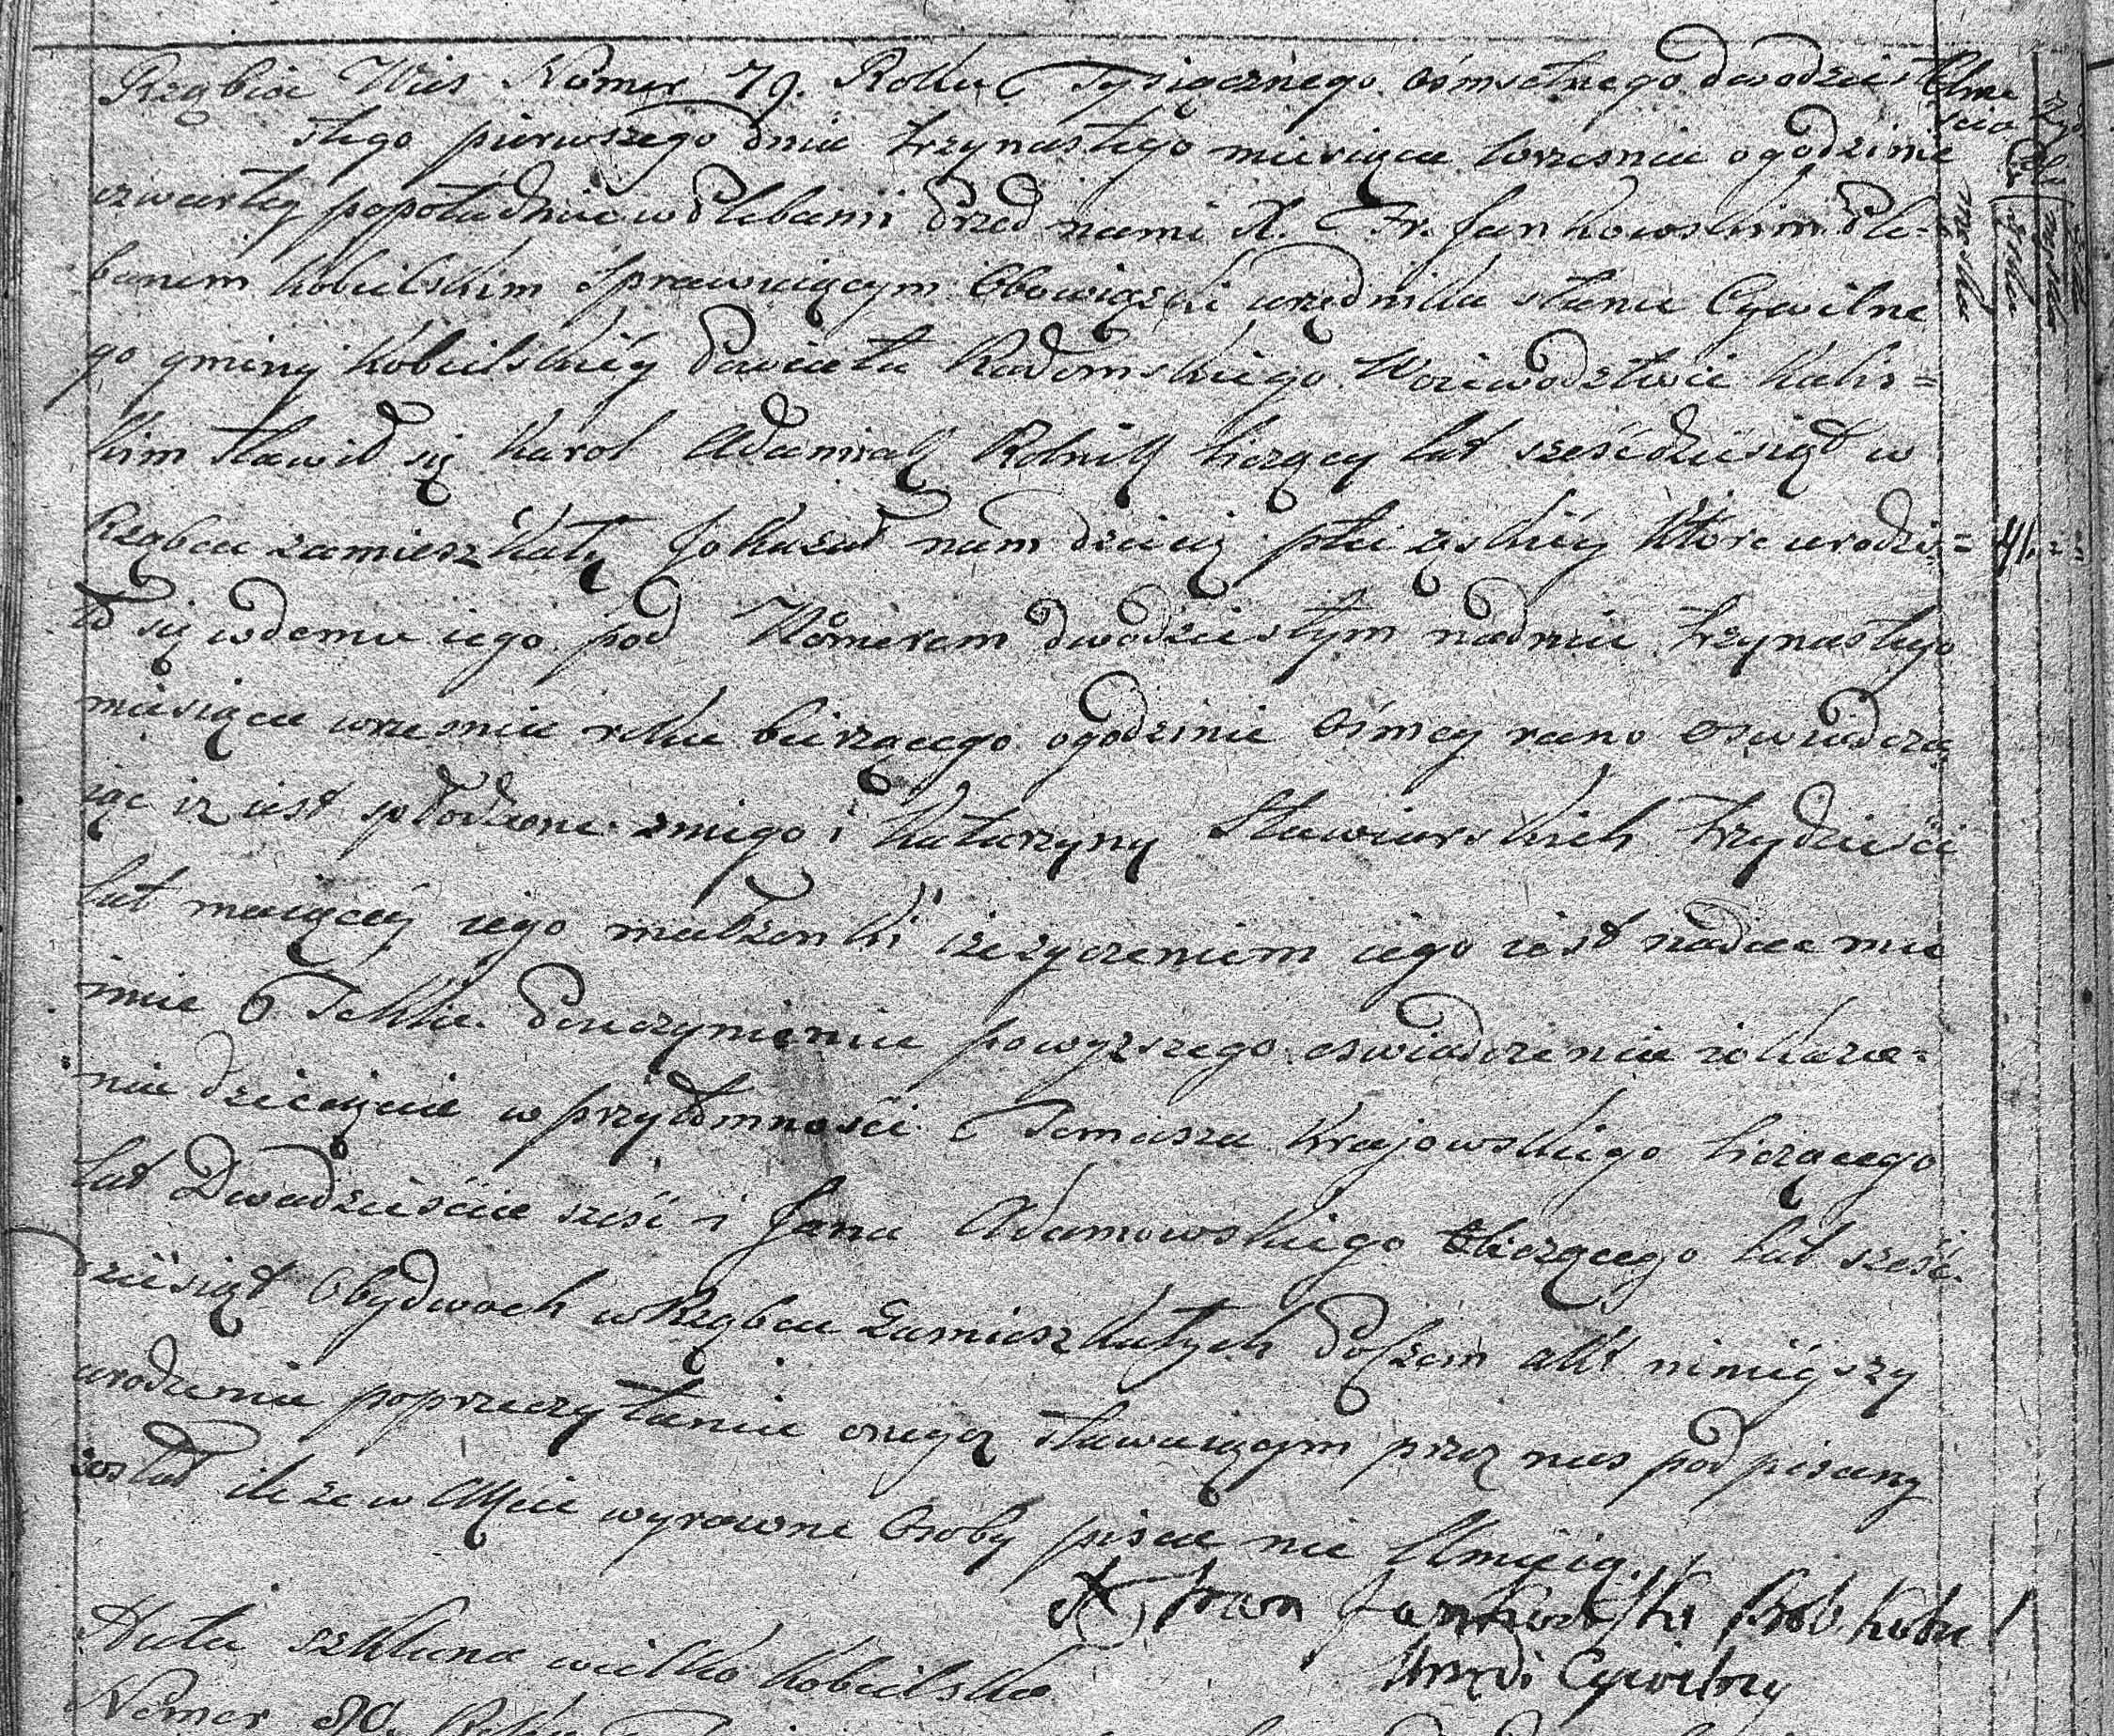 Rząbiec Wieś Nómer 79. Roku Tysiącznego ósmsetnego dwódziest
stego pierwszego dnia trzynastego miesiąca wrzesnia o godzinie
czwartej popołudniu w Plebanii Przed nami X. Fr. Jankowskim Ple-
banem kobielskim sprawuiącym Obowiązki urzędnika stanu Cywilne
go gminy kobielskiéy Powiatu Radomskiego Woiewodztwie Kalis=
kim stawił się Karol Adamiak Rolnik liczący lat sześćdziesiąt w
Rząbcu zamieszkały Jokazał nam dziecię płci żęskiéy które urodzi=
ło się w domu iego pod Nómerem dwódziestym nadniu trzynastego
miesiąca wrzesnia roku bieżącego o godzinie ósmey rano oswiadcza
iąc iż iest spłodzone zniego i Katarzyny Stawiarskich trzydzieści
lat maiącéy iego małżonki iże życzeniem iego iest nadać mu
imie Tekla. Pouczynieniu powyższego oswiadczenia iokaza=
niu dziecięcia w przytomności Tomasza Krajewskiego liczącego
lat Dwadzieścia sześć i Jana Adamowskiego liczącego lat sześć
dziesiąt Obydwoch w Rząbcu Zamieszkałych Poczem akt ninieyszy
urodzenia poprzeczytaniu onegoż stawaiącym przez nas podpisany
został ileże w Akcie wyrażone Osoby pisać nie Umieią.
X Fran Jankowski Prob. kobie
Urzęd: Cywilny
Huta szklana wielko kobielska
Nómer 80. Roku